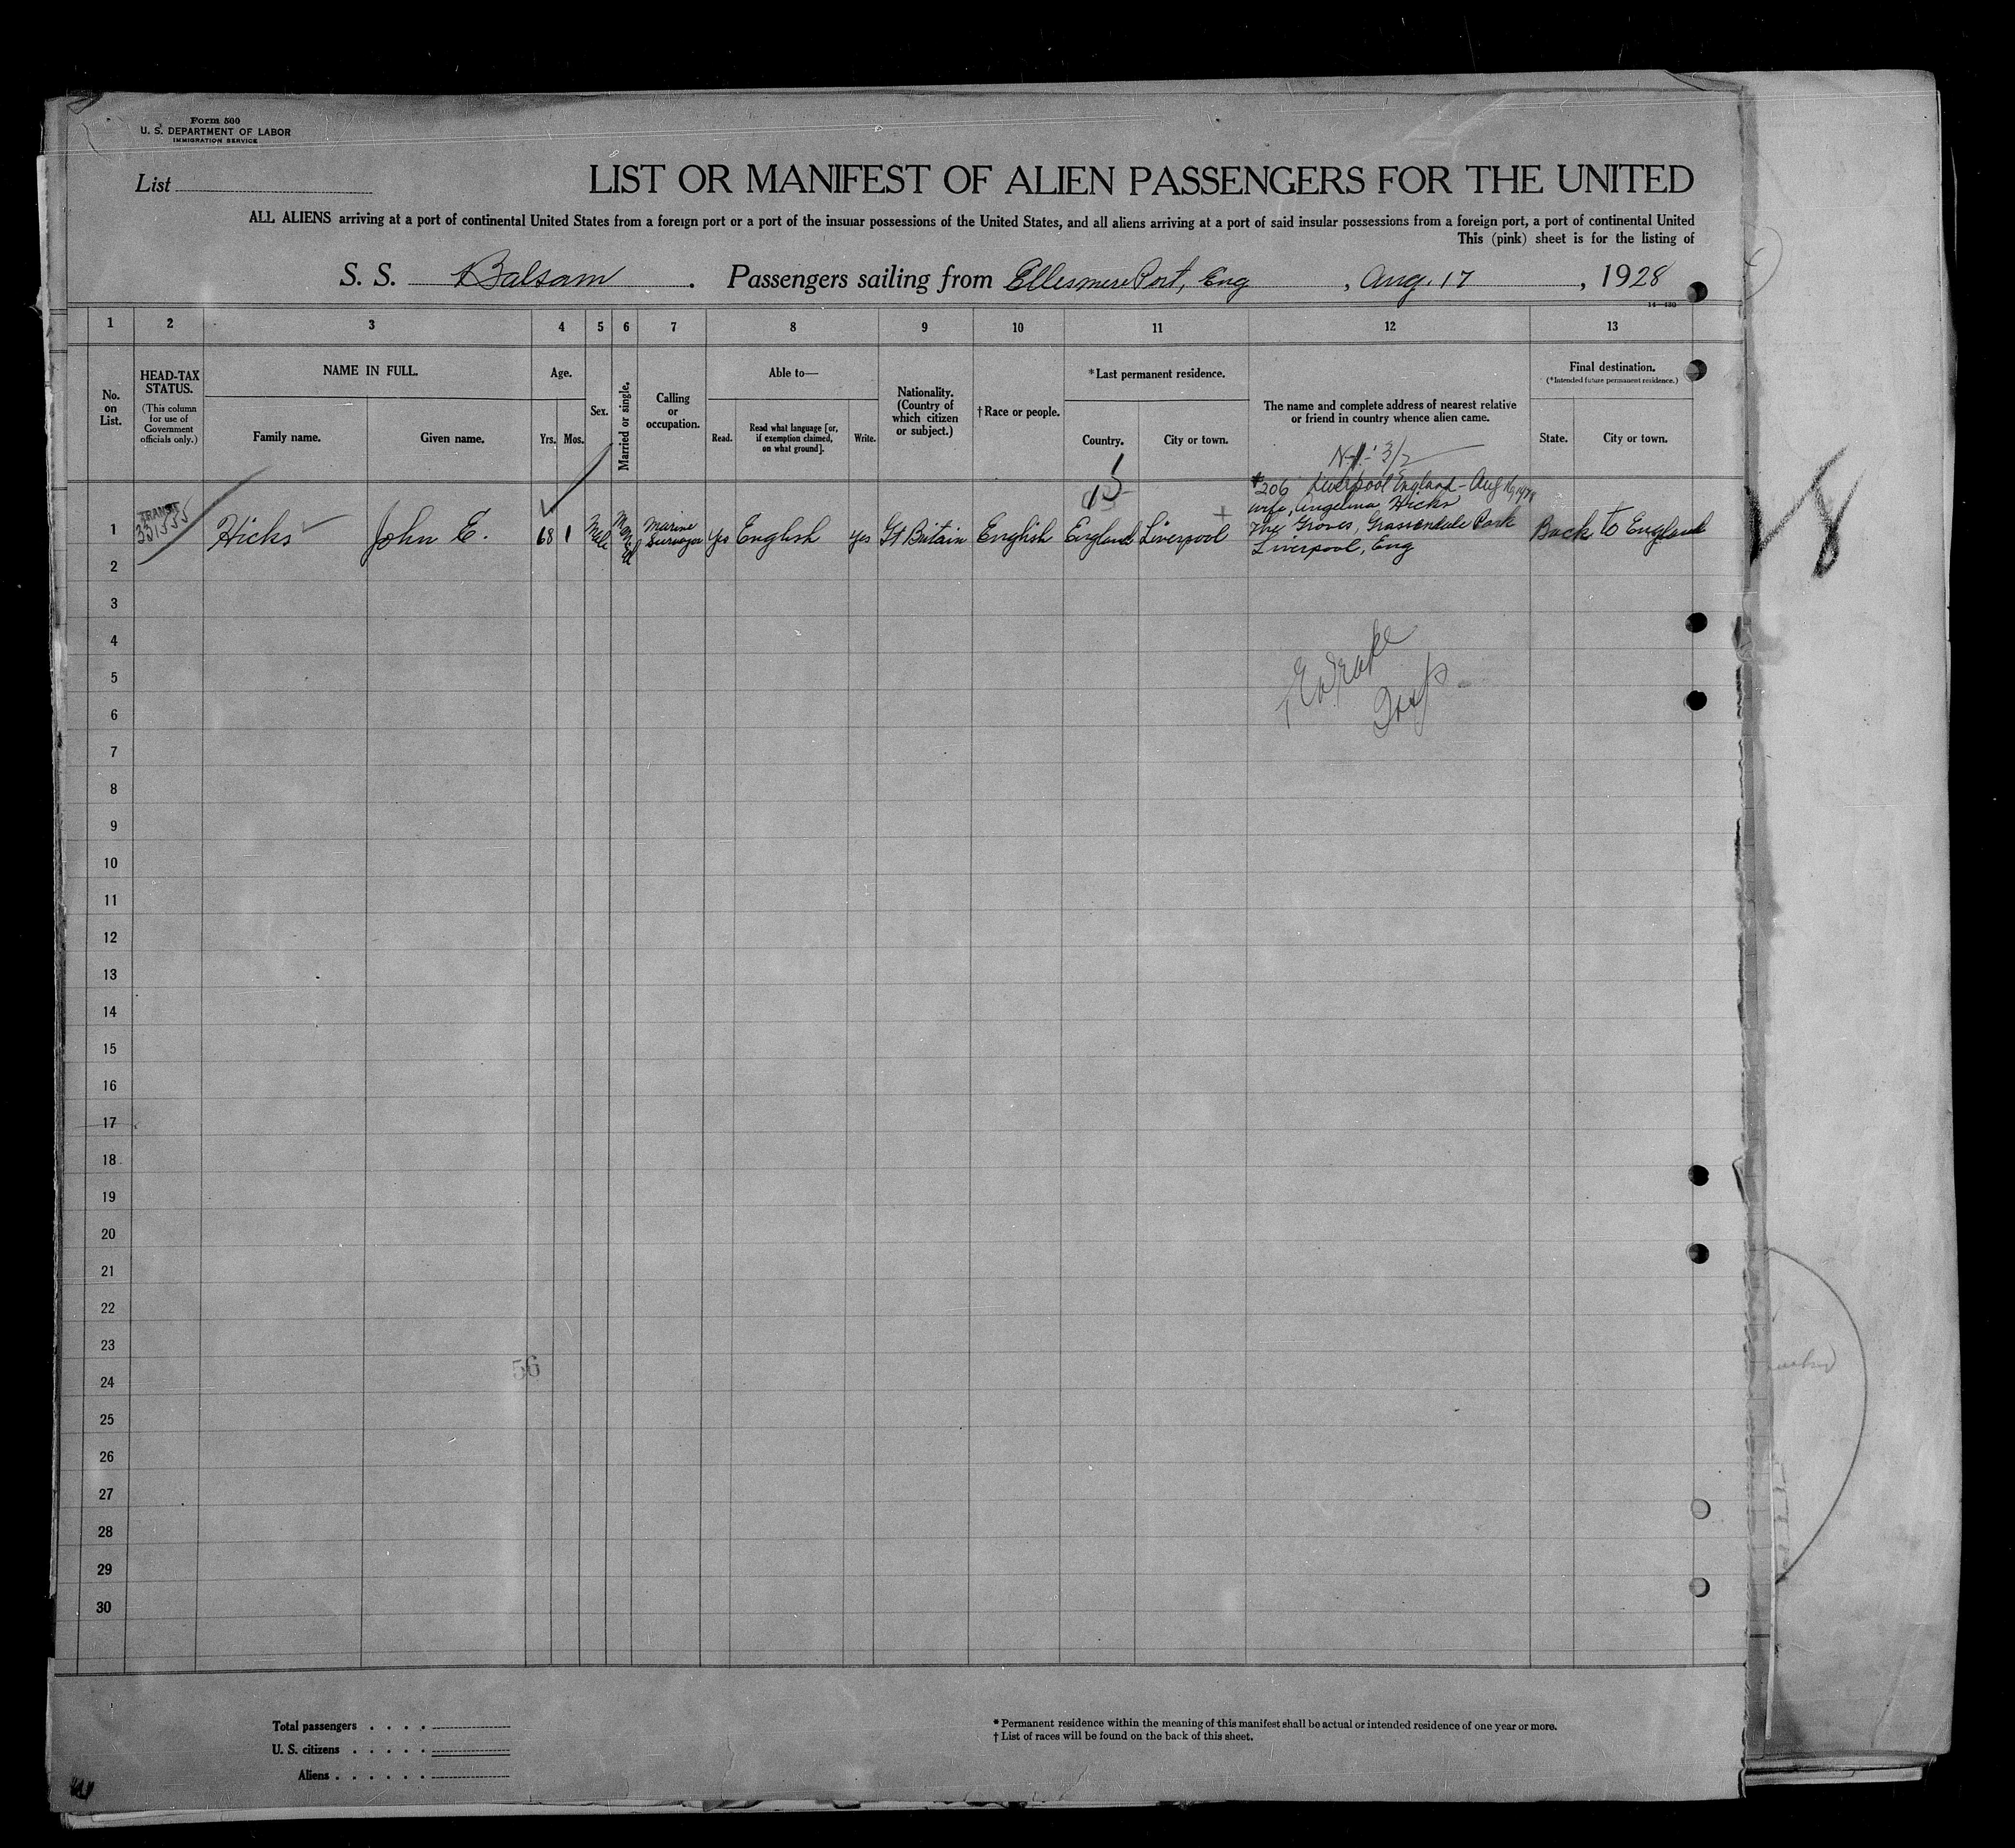 Form 500
U. S. DEPARTMENT OF LABOR
IMMIGRATION SERVICE
List
LIST OR MANIFEST OF ALIEN PASSENGERS FOR THE UNITED
ALL ALIENS arriving at a port of continental United States from a foreign port or a port of the insular possessions of the United States, and all aliens arriving at a port of said insular possessions from a foreign port, a port of continental United
This (pink) sheet is for the listing of
S. S. Balsam . Passengers sailing from Ellesmere Port, Eng , Aug. 17 , 1928
14—430
1 2 3 4 5 6 7 8 9 10 11 12 13
No. on List.
HEAD-TAX STATUS.
(This column for use of Government officials only.)
NAME IN FULL.
Family name. Given name.
Age.
Yrs. Mos.
Sex.
Married or single.
Calling or occupation.
Able to—
Read. Read what language [or, if exemption claimed, on what ground]. Write.
Nationality. (Country of which citizen or subject.)
†Race or people.
*Last permanent residence.
Country. City or town.
The name and complete address of nearest relative or friend in country whence alien came.
Final destination.
(*Intended future permanent residence.)
State. City or town.
#206 Liverpool England - Aug 16, 1928
wife, Angelina Hicks
1 TRANSIT Hicks John E. 68 1 Male Married Marine Surveyor yes English yes Gt Britain English England Liverpool The Groves, Grassendale Park Back to England
Liverpool, Eng
2
3
4
5
6
7
8
9
10
11
12
13
14
15
16
17
18
19
20
21
22
23
56
24
25
26
27
28
29
30
Total passengers . . . .
U. S. citizens . . . . .
Aliens . . . . . .
* Permanent residence within the meaning of this manifest shall be actual or intended residence of one year or more.
† List of races will be found on the back of this sheet.